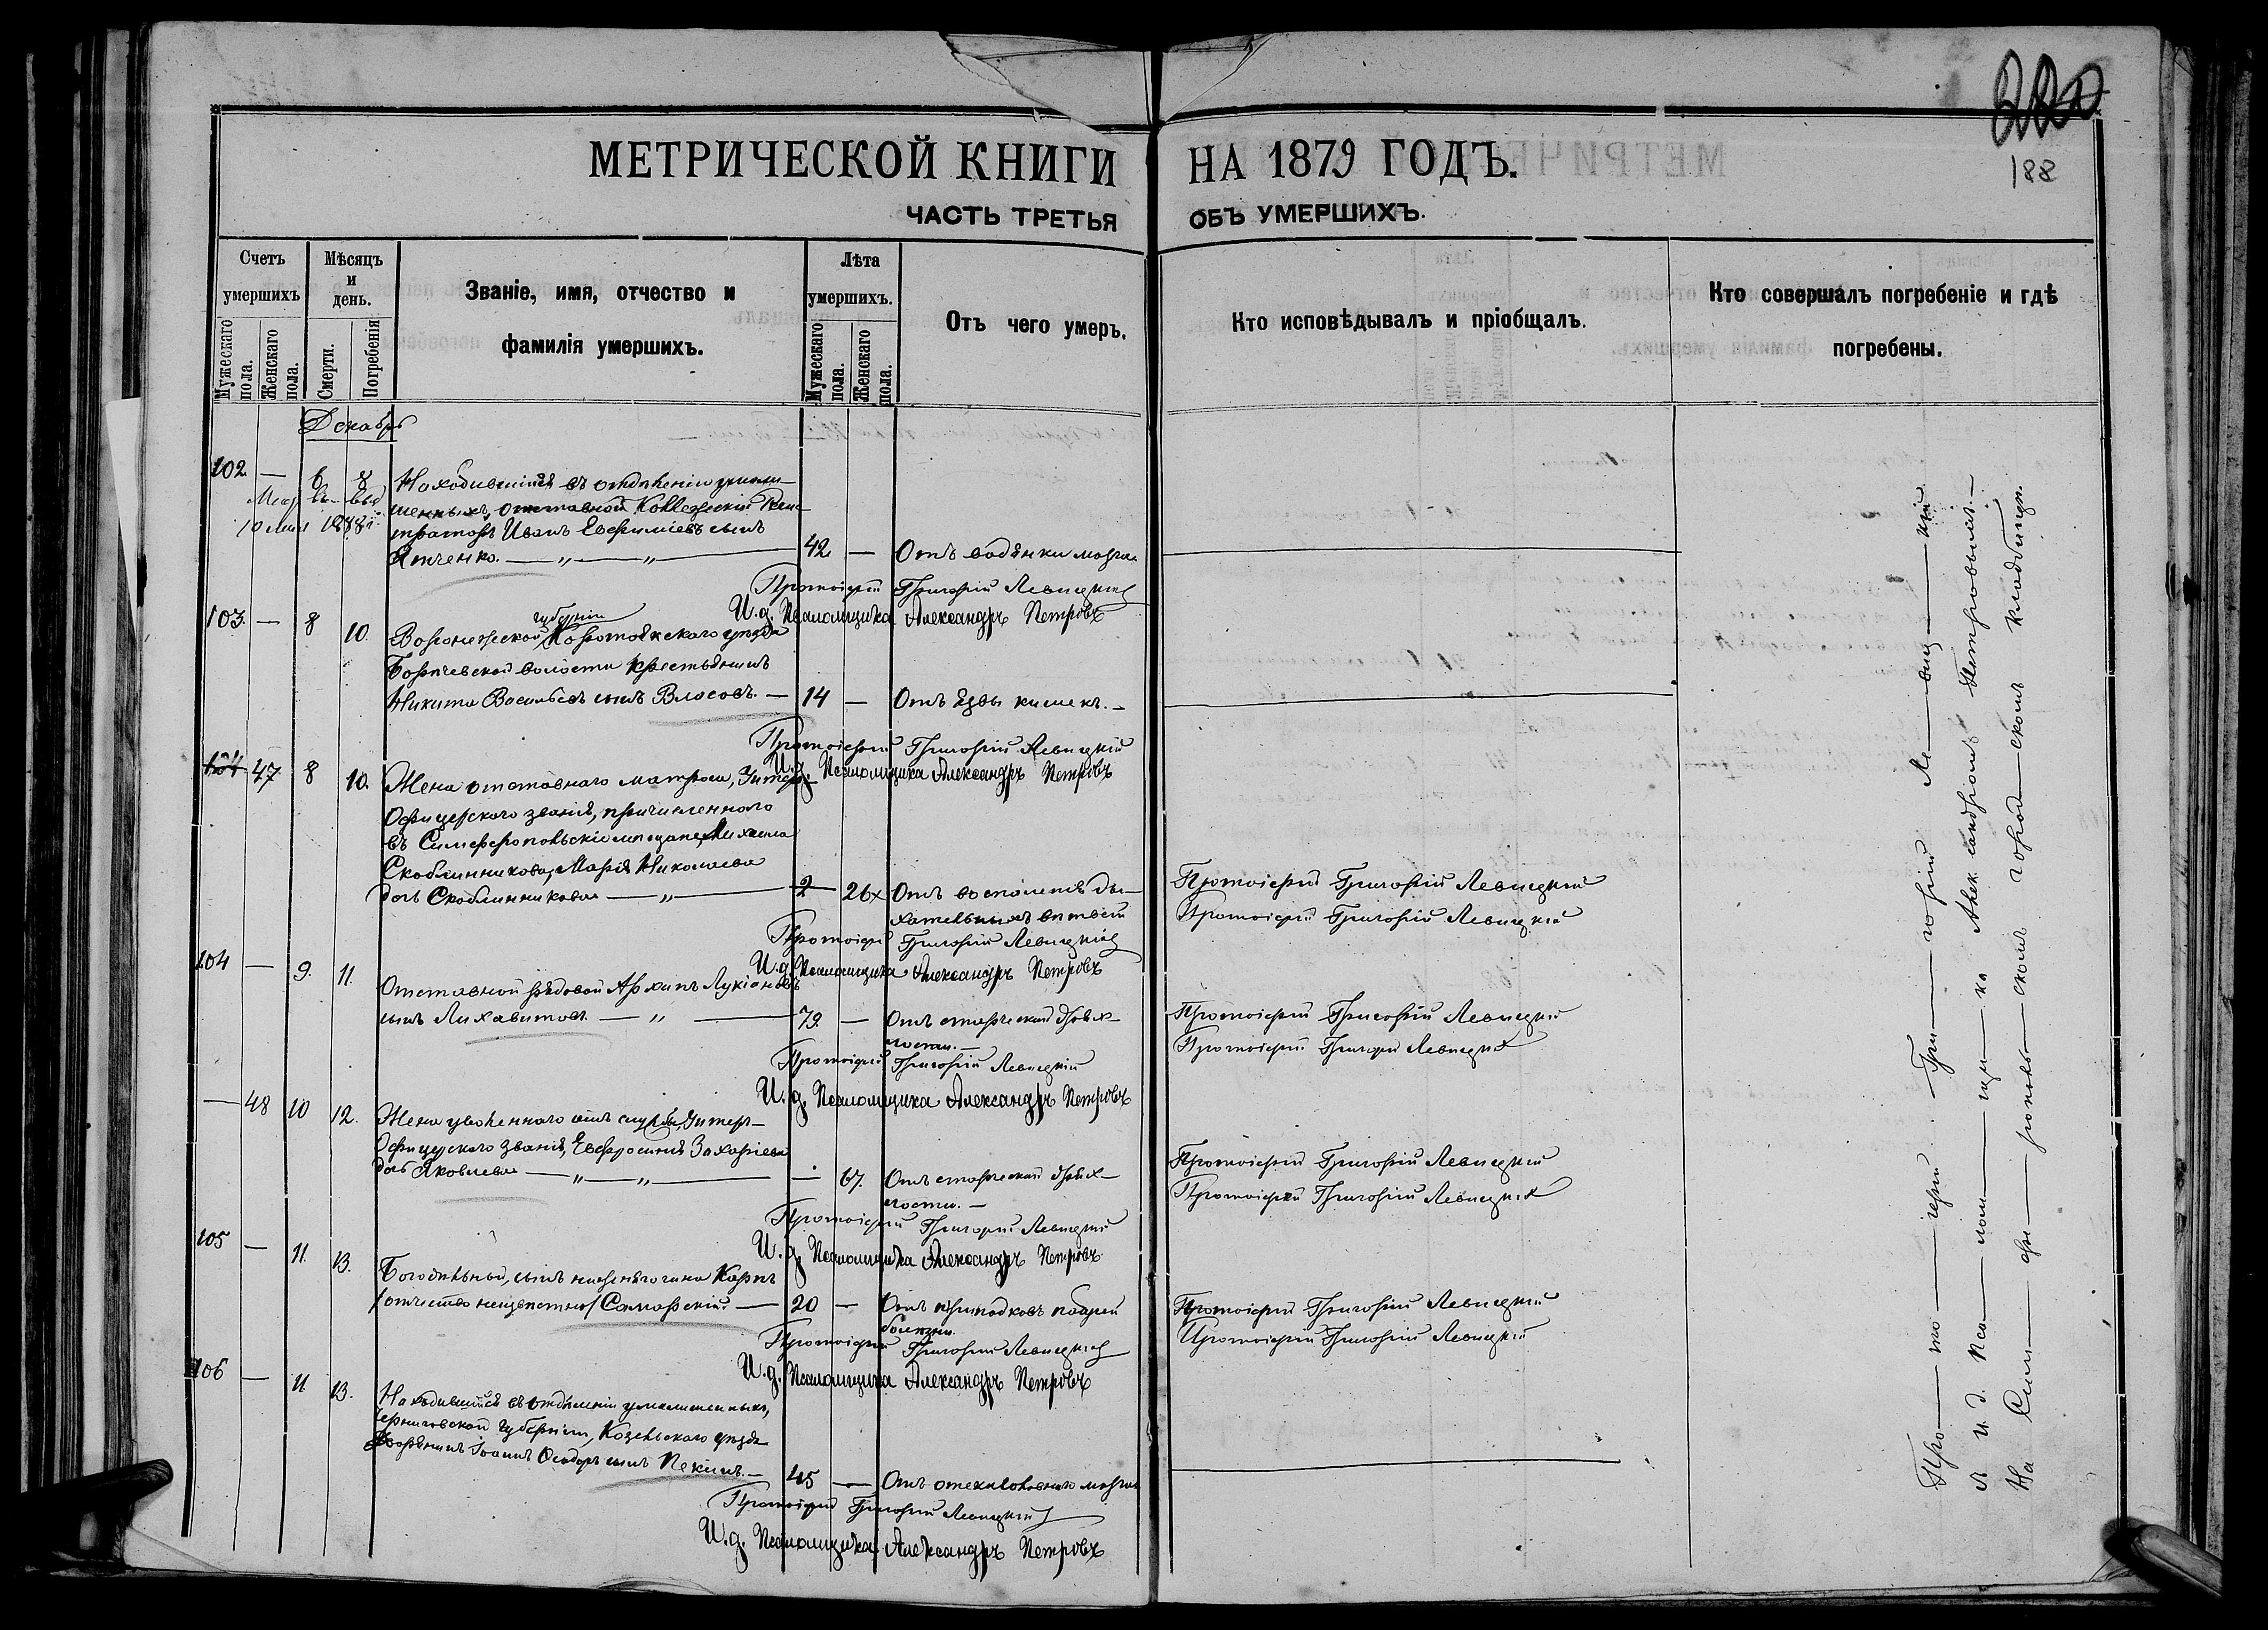 220
188
МЕТРИЧЕСКОЙ КНИГИ НА 1879 ГОДЪ.
ЧАСТЬ ТРЕТЬЯ ОБЪ УМЕРШИХЪ.
Счетъ умершихъ
Мужескаго пола.
Женскаго пола.
Мѣсяцъ и день.
Смерти.
Погребенія
Званіе, имя, отчество и
фамилія умершихъ.
Лѣта умершихъ.
Мужескаго пола.
Женскаго пола.
Отъ чего умеръ.
Кто исповѣдывалъ и пріобщалъ.
Кто совершалъ погребеніе и гдѣ
погребены.
Декабрь
102. — 6 8 Находившійся въ отдѣленіи умали-
шенныхъ, отставной Коллежскій Реги-
стратор Иванъ Евфиміевъ сынъ
Ятченко. — „ — „ — 42 — Отъ водянки мозга
Протоіерей Григорій Левицкій
И.д. Псаломщика Александръ Петровъ
103. — 8 10. Воронежской губерніи Коротоякского уѣзда
волости крестьянинъ
Никита Васильевъ сынъ Власовъ. — 14 — Отъ язвы кишекъ. —
Протоіерей Григорій Левицкій
И.д. Псаломщика Александръ Петровъ
104 47 8 10. Жена отставнаго матроса, Унтеръ-
Офицерского званія, причисленного
въ Симферопольскіе мещане, Михаила
Скоблинникова, Марія Николаева
дочь Скоблинникова — „ — 2 26 Отъ воспаленія ды-
хательныхъ вѣтвей
Протоіерей Григорій Левицкій
Протоіерей Григорій Левицкій
Протоіерей Григорій Левицкій
И.д. Псаломщика Александръ Петровъ
104 — 9. 11. Отставной рядовой Архипъ Лукіановъ
сынъ Лихавитовъ. — „ — 79. — Отъ старческой дрях-
лости. —
Протоіерей Григорій Левицкій
Протоіерей Григорій Левицкій
Протоіерей Григорій Левицкій
И.д. Псаломщика Александръ Петровъ
— 48 10 12. Жена уволеннаго отъ службы, Унтеръ-
Офицерского званія, Евфросинія Захаріева
дочь Яковлева — „ — „ — — 67. Отъ старческой дрях-
лости. —
Протоіерей Григорій Левицкій
Протоіерей Григорій Левицкій
Протоіерей Григорій Левицкій
И.д. Псаломщика Александръ Петровъ
105 — 11. 13. Богодѣльный, сынъ нижняго чина Карпъ
/отчество неизвѣстно/ Самарскій. — 20 — Отъ припадковъ падучей
болѣзни.
Протоіерей Григорій Левицкій
Протоіерей Григорій Левицкій
Протоіерей Григорій Левицкій
И.д. Псаломщика Александръ Петровъ
106 — 11 13. Находившійся въ отдѣленіи умалишенныхъ,
Черниговской губерніи, Козельского уѣзда
Дворянинъ Іоаннъ Ѳеодоръ сынъ — 45 — Отъ отека головнаго мозга
Протоіерей Григорій Левицкій
И.д. Псаломщика Александръ Петровъ
Про — то — іерей Гри — горій Ле — виц — кій
и И. д. Пса — лом — щи — ка Александромъ Петровымъ. —
На Сим — фе — рополь — скомъ город — скомъ кладбищѣ.